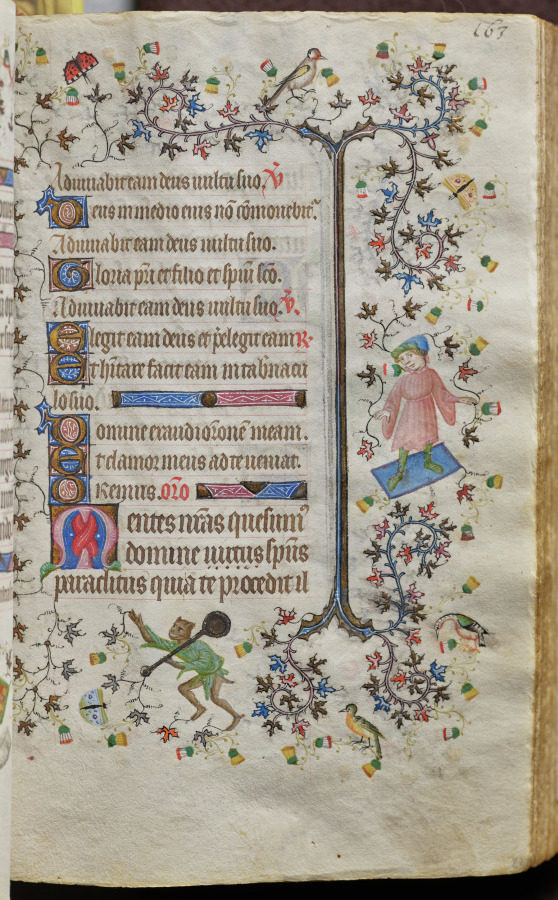 163
Adiuuabit eam deus uultu suo. V̷
Deus in medio eius nō cōmouebit᷑.
Adiuuabit eam deus uultu suo.
Gloria pr̄i et filio et spūi sc̄o.
Adiuuabit eam deus uultu suo. V̷.
Elegit eam deus et p̄elegit eam R̷
Et hītare facit eam in tab̄naclo
lo suo.
Domine exaudi or̄onē meam.
Et clamor meus ad te ueniat.
Oremus. or̄o
Mentes nr̄as quesum᷒
domine uirtus sp̄us
paraclitus quia te procedit il